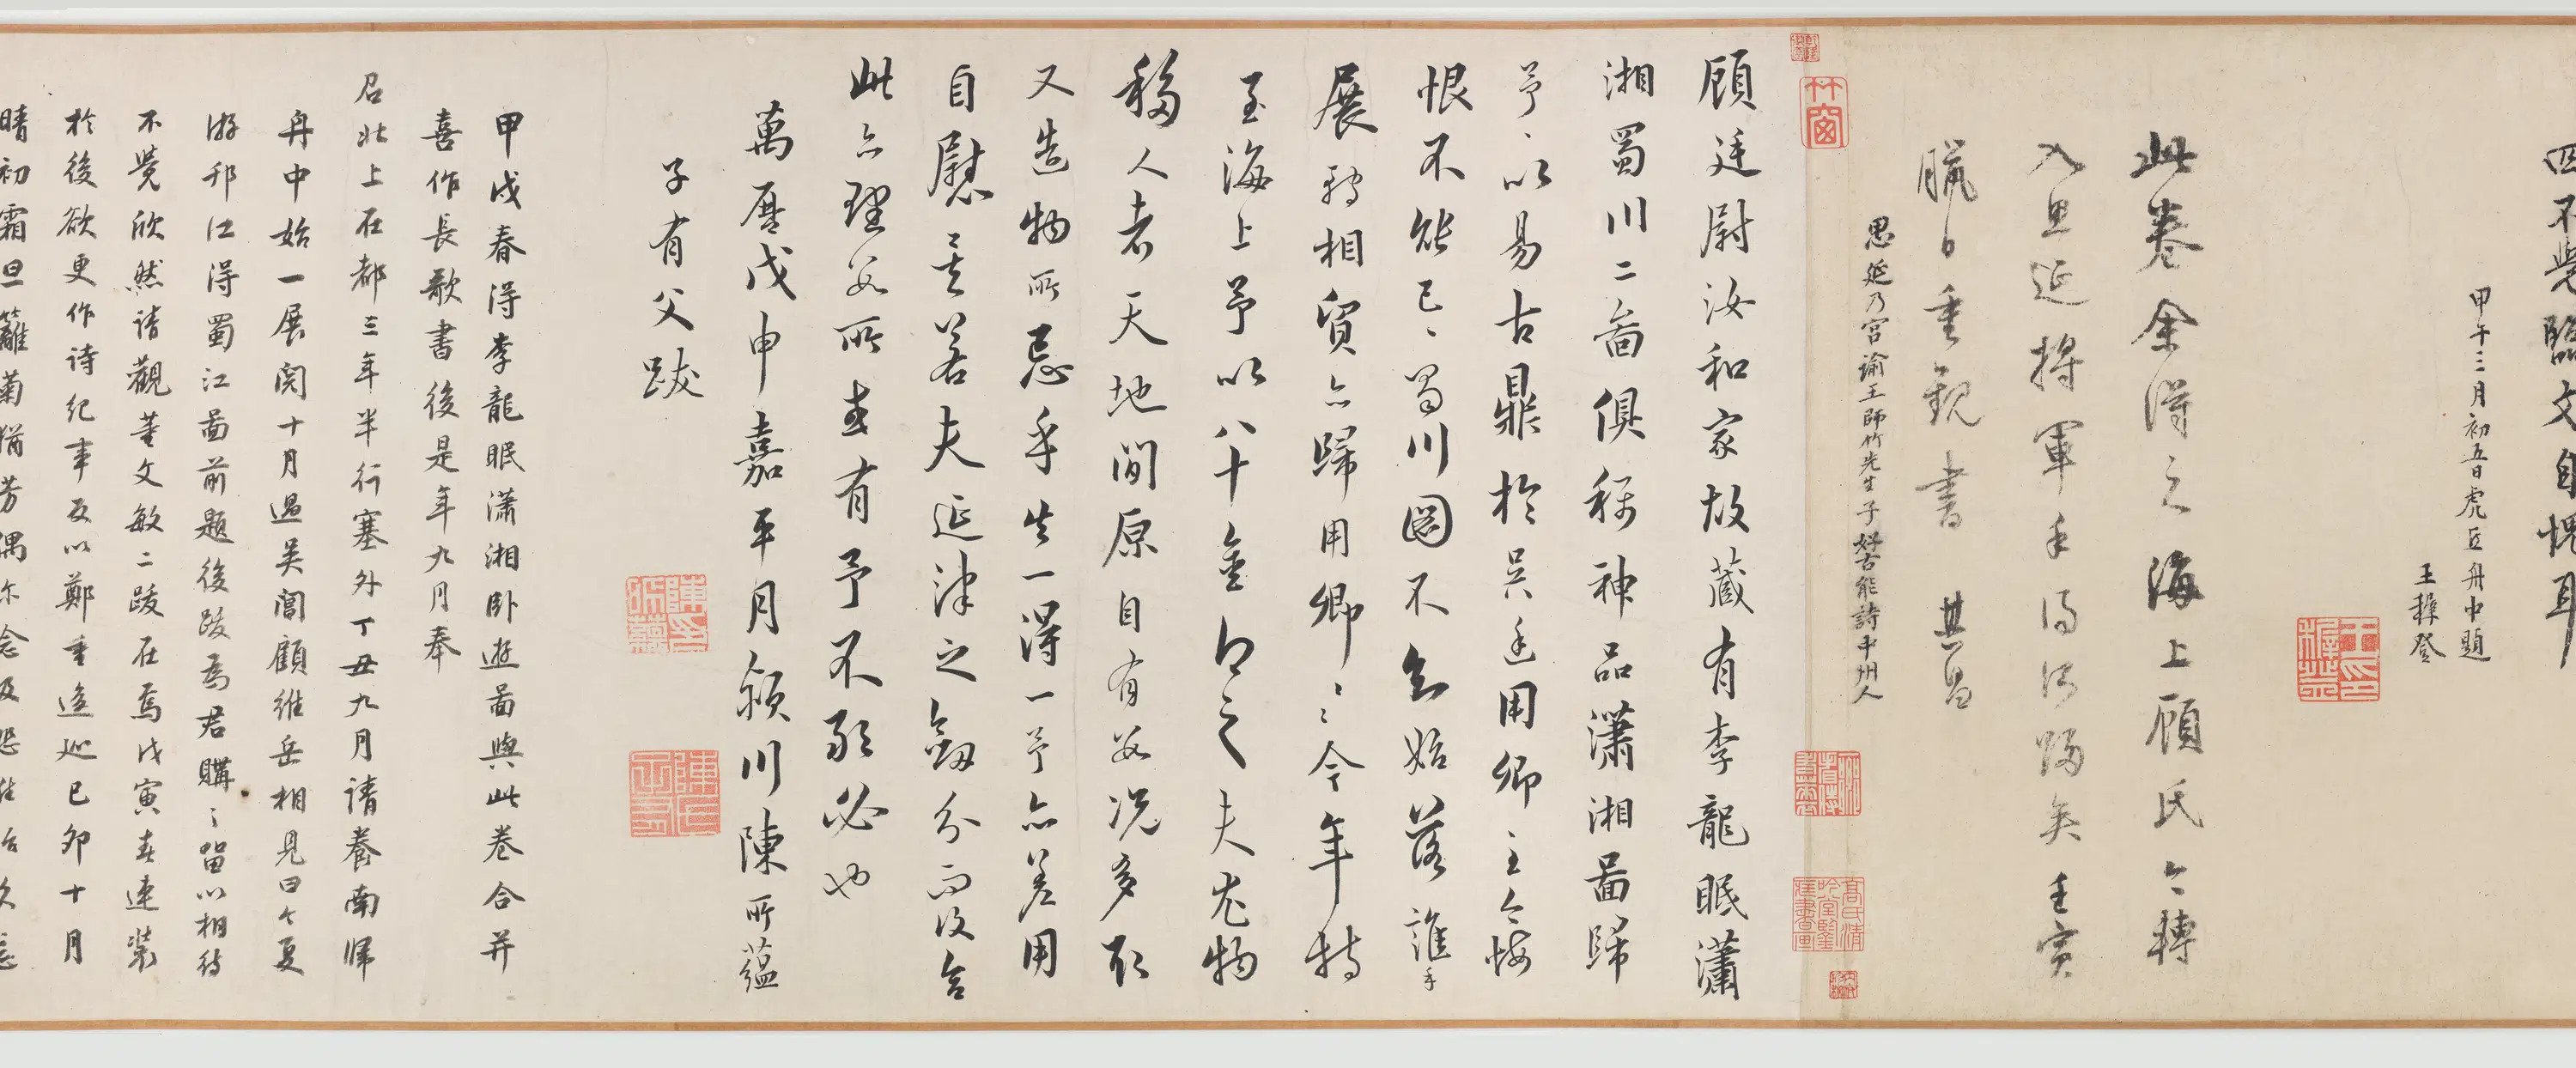 四不覺臨文自愧耳
甲午三月初五日虎丘舟中題
王穉登
此卷余得之海上顧氏今轉
入思延將軍手得所歸矣壬寅
臘日重觀書 其昌
思延乃宮諭王師竹先生子好古能詩中州人
顧廷尉汝和家故藏有李龍眠瀟
湘蜀川二圖俱稱神品瀟湘圖歸
予予以易古鼎於吳廷用卿主今悔
恨不能已已蜀川圖不知始落誰手
展轉相貿亦歸用卿用卿今年特
至海上予以八十金得之夫尤物
移人者天地間原自有數況多取
又造物所忌乎失一得一予亦差用
自慰其若夫延津之劍分而復合
此亦理數所或有予不敢必也
萬曆戊申嘉平月潁川陳所蘊
子有父跋
甲戌春得李龍眠瀟湘卧遊圖與此卷合并
喜作長歌書後是年九月奉
召北上在都三年半行塞外丁丑九月請養南歸
舟中始一展閱十月過吳閶顧維岳相見曰今夏
游邗江得蜀江圖前題後跋爲君購購留以相待
不覺欣然請觀董文敏二跋在焉戊寅春連裝
於後欲更作詩紀事反以鄭重逡巡己卯十月
晴初霜旦籬菊猶芳偶尔念及恐